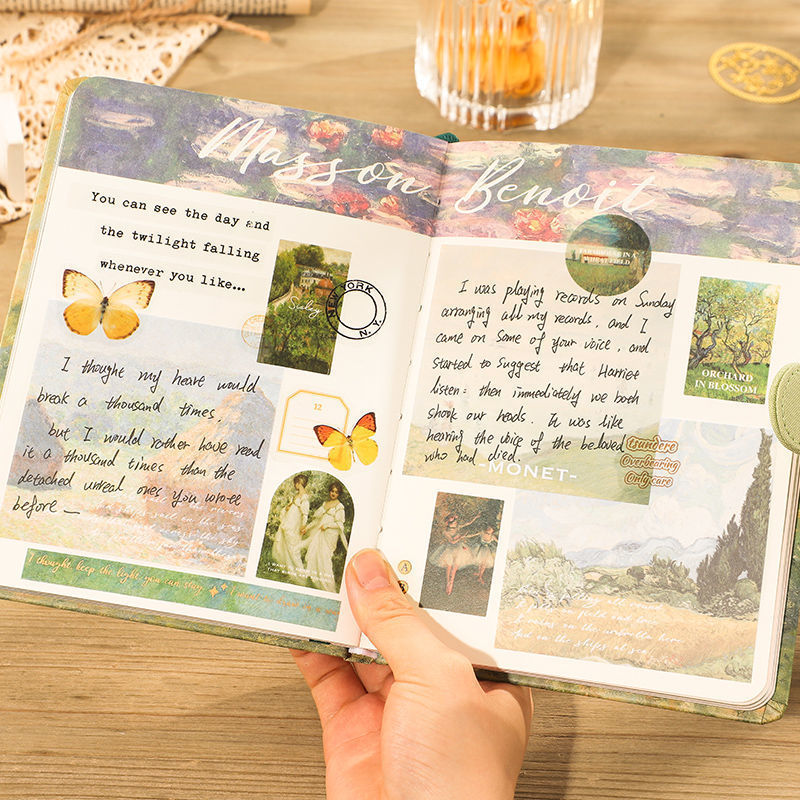 Masson Benoit
You can see the day and
the twilight falling
whenever you like...
NEW YORK
N.Y.
I thought my heart would
break a thousand times,
but I would rather have read
it a thousand times than the
detached unreal ones you wrote
before —
12
I thought keep the light you can stay
I was playing records on Sunday
arranging all my records, and I
came on some of your voice, and
started to suggest that Harriet
listen: then immediately we both
shook our heads. It was like
hearing the voice of the beloved
who had died.
-MONET-
WHEAT FIELD
ORCHARD
IN BLOSSOM
tsundere
Overbearing
Only care
A